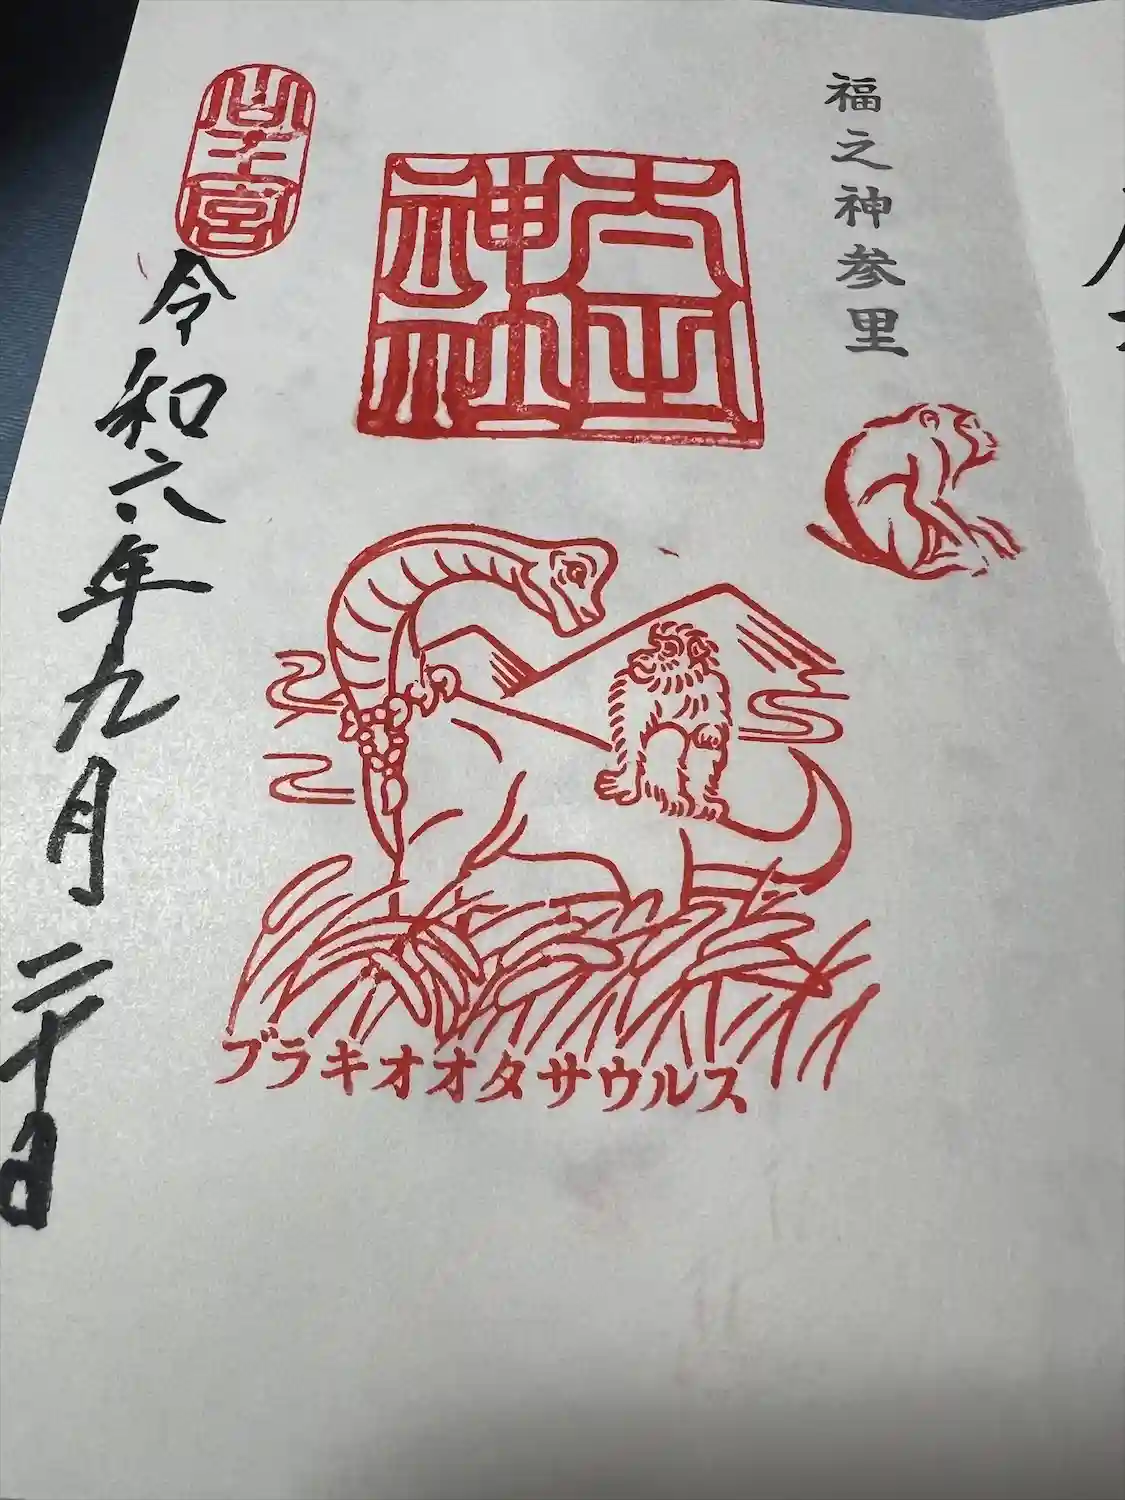 福之神参里
神社
山王宮
令和六年九月二十日
ブラキオオタサウルス